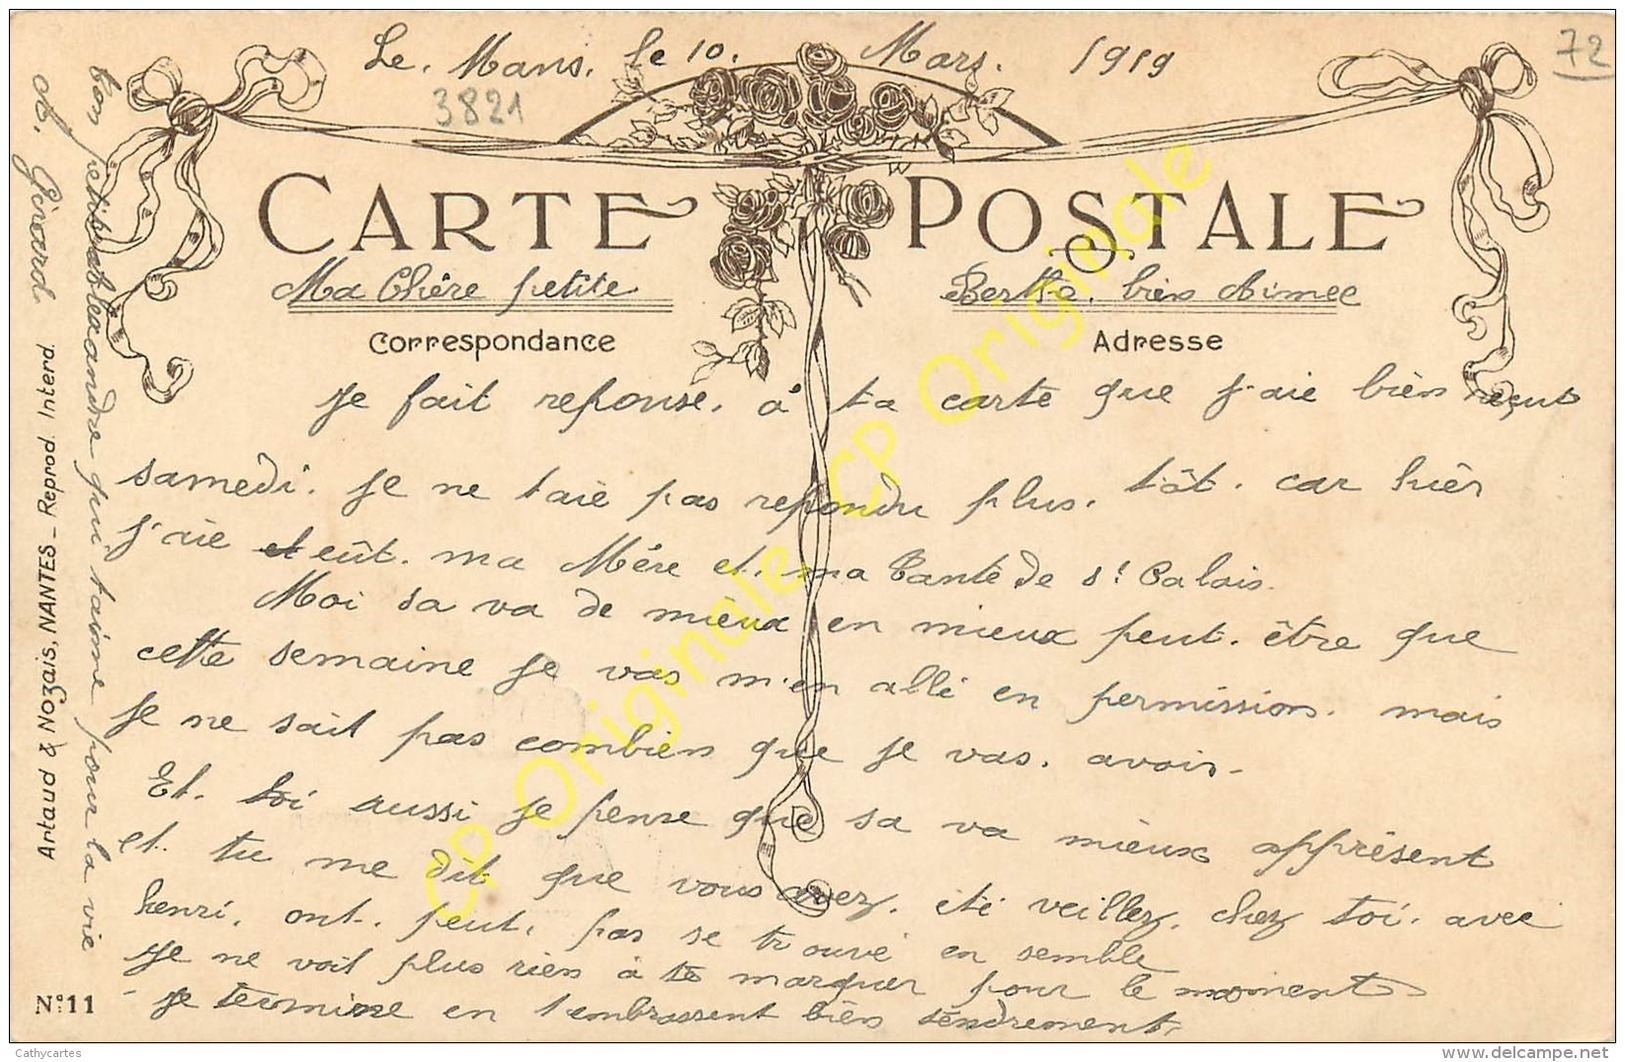 Le. Mans. le 10. Mars. 1919
3821
72
CARTE POSTALE
Ma Chére petite Berthe. bien Aimee
Correspondance
Adresse
Je fait reponse. á ta carte que j'aie bièn reçut
samedi. Je ne taie pas repondu plus. tât. car hièr
j'aie eût. ma Mére et. ma Tante de St Calais.
Moi sa va de mieux en mieux peut. être que
cette semaine Je vas m'en allé en permission. mais
Je ne sait pas combien que je vas. avoir.
Et. toi aussi Je pense que sa va mieux apprésent
et. tu me dit que vous avez. été veillez. chez toi. avec
henri. ont. peut. pas se trouvé en semble
Je ne voit plus rien à te marquer pour le moment
Je termine en t'embrassent bien tendrement.
ton petit Alexandre qui. taime pour la vie
A. Girard.
Artaud & Nozais, NANTES_ Reprod. Interd.
Nº11
CP Originale CP Originale CP Originale
Cathycartes
www.delcampe.net